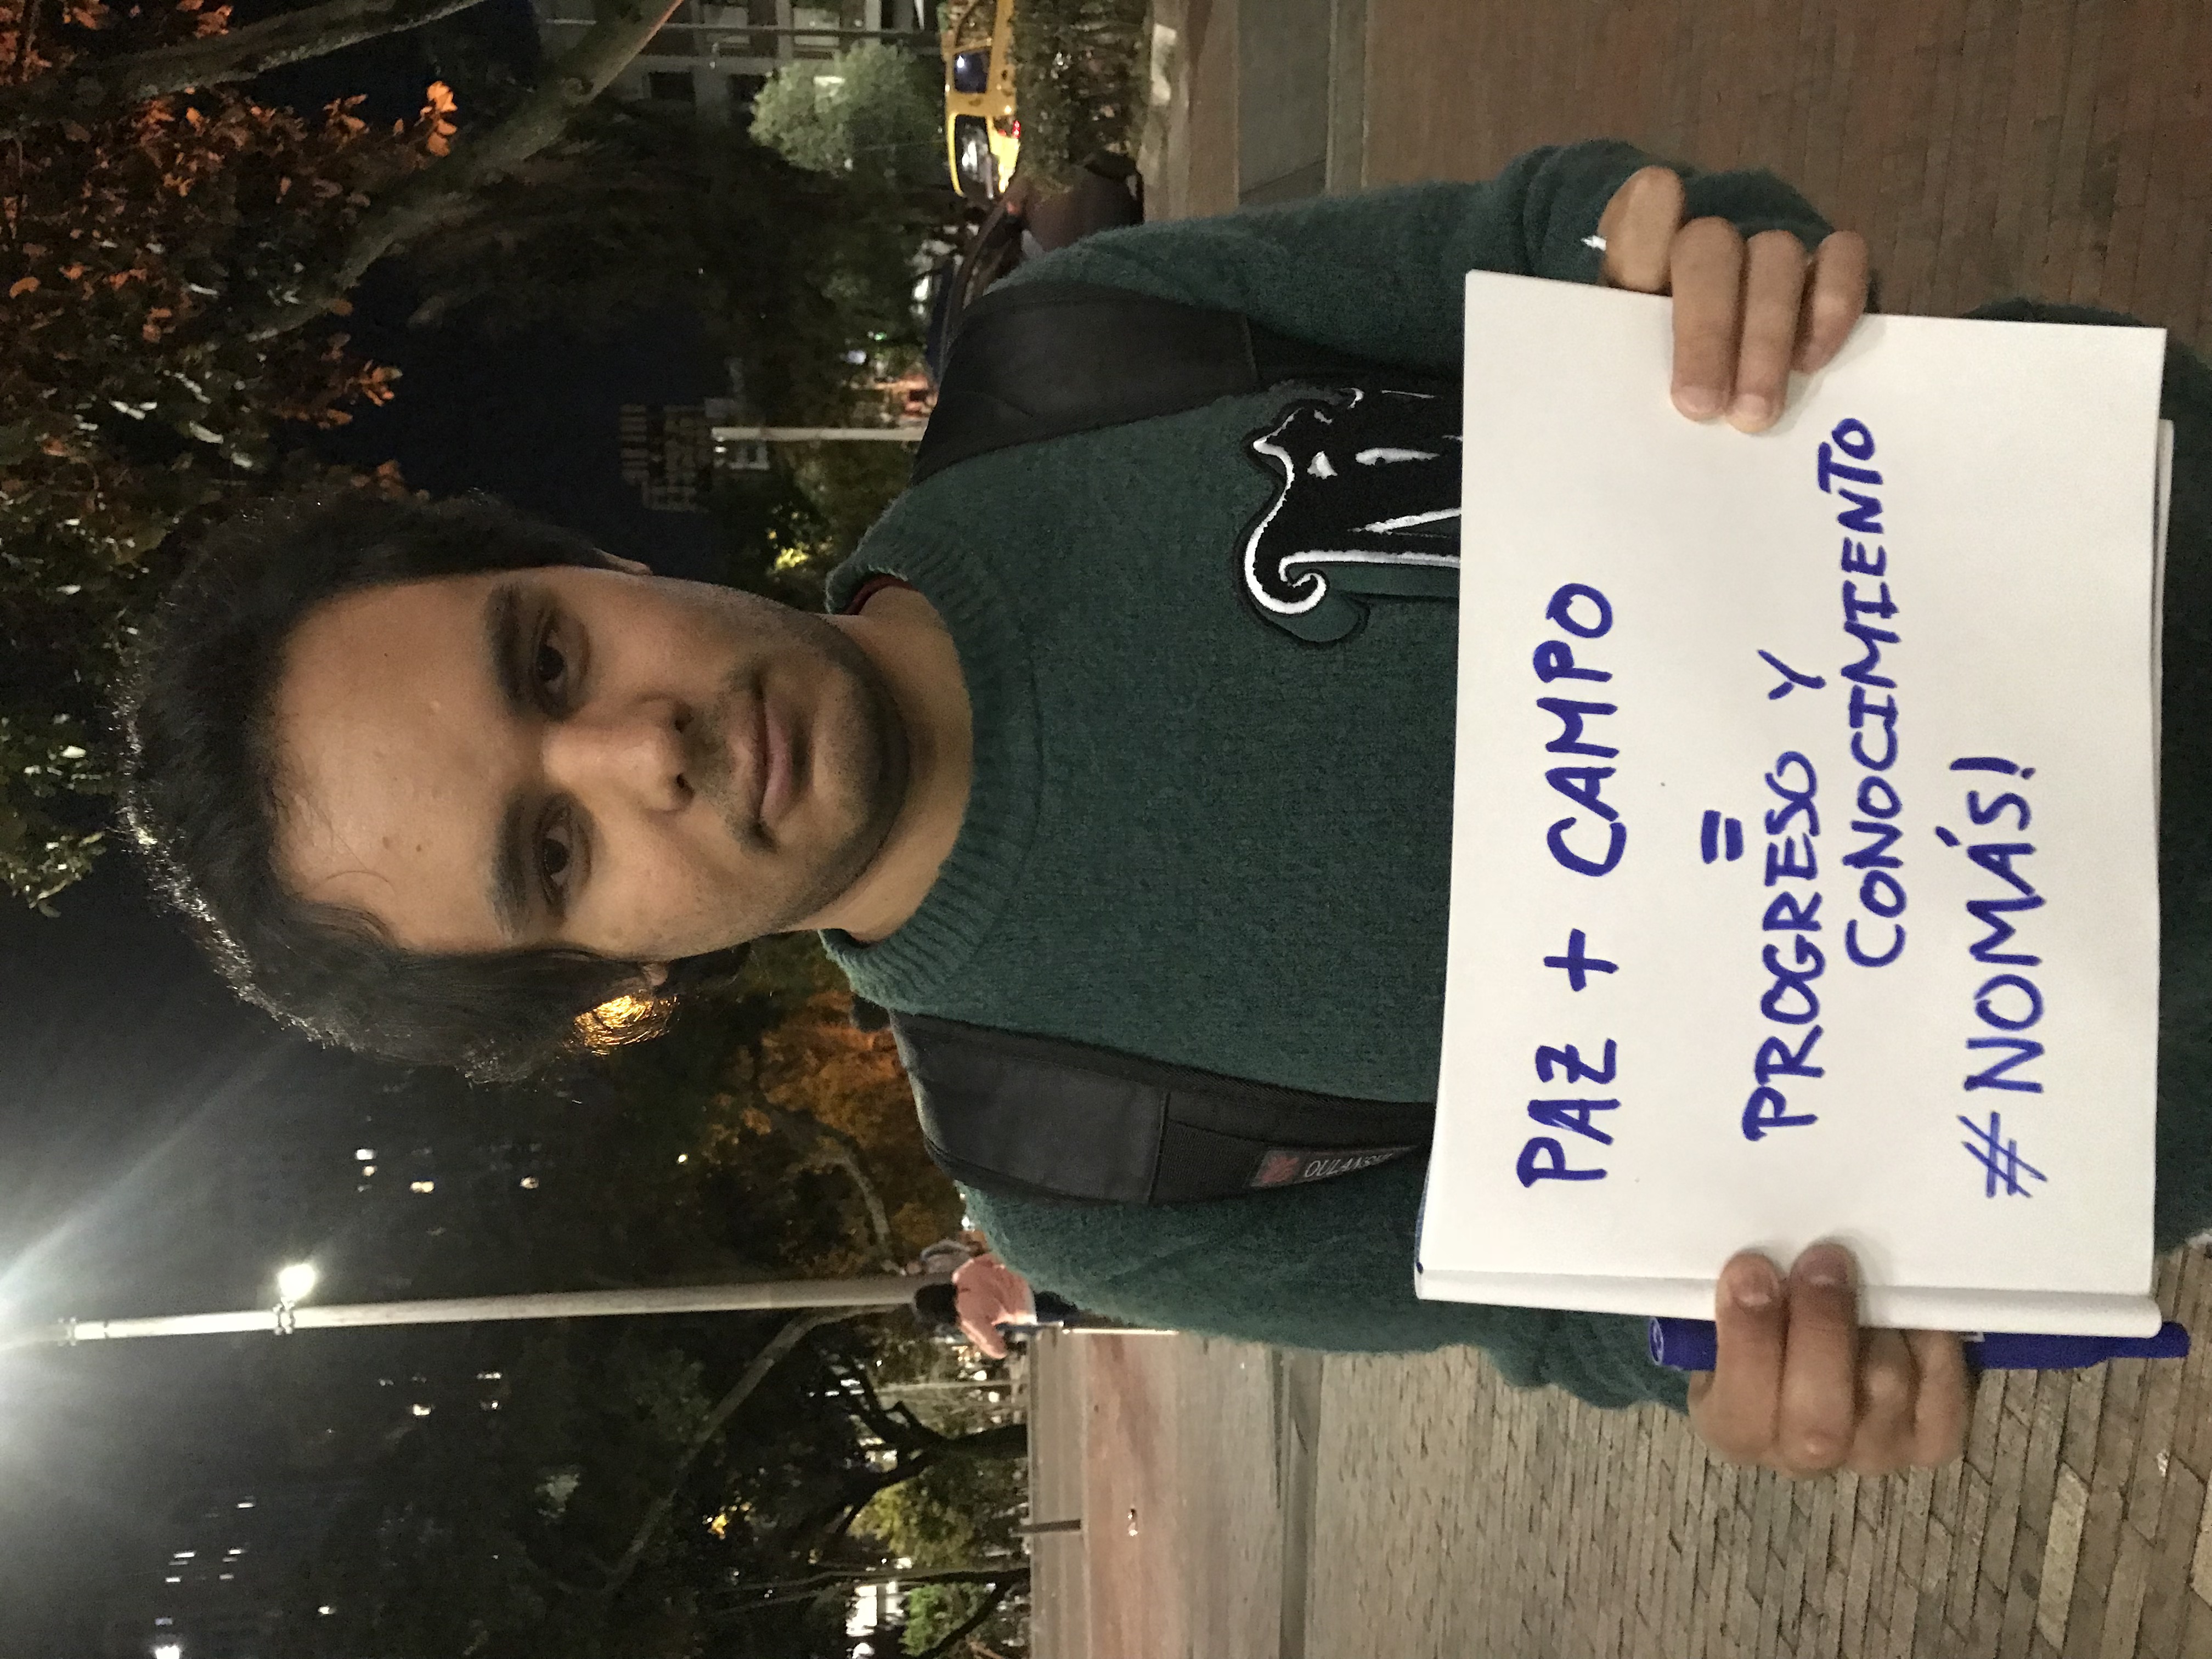 PAZ + CAMPO
=
PROGRESO Y
CONOCIMIENTO
#NOMÁS!